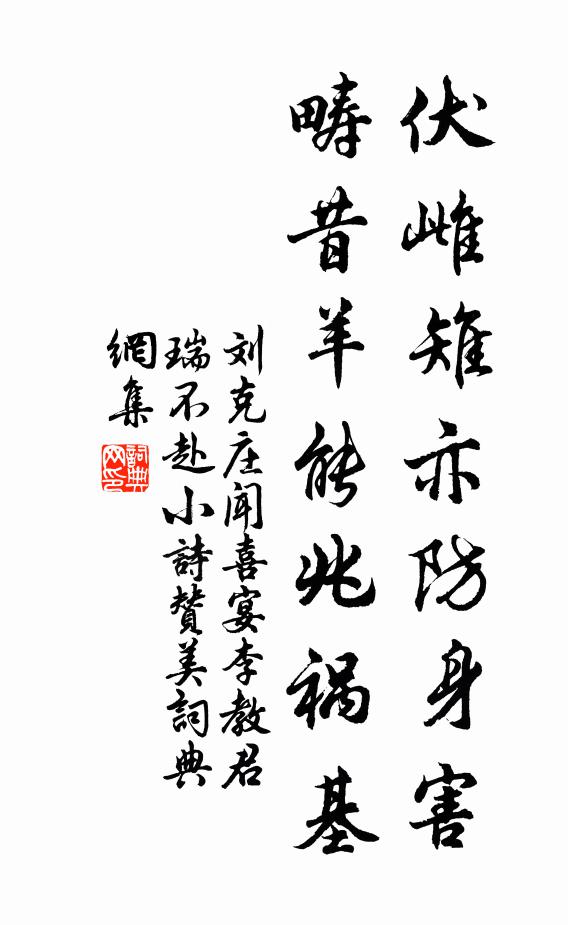 伏雌雉亦防身害
畴昔羊能兆祸基
刘克庄闻喜宴李教君
瑞不赴小詩賛美詞典
網集
詞典网印